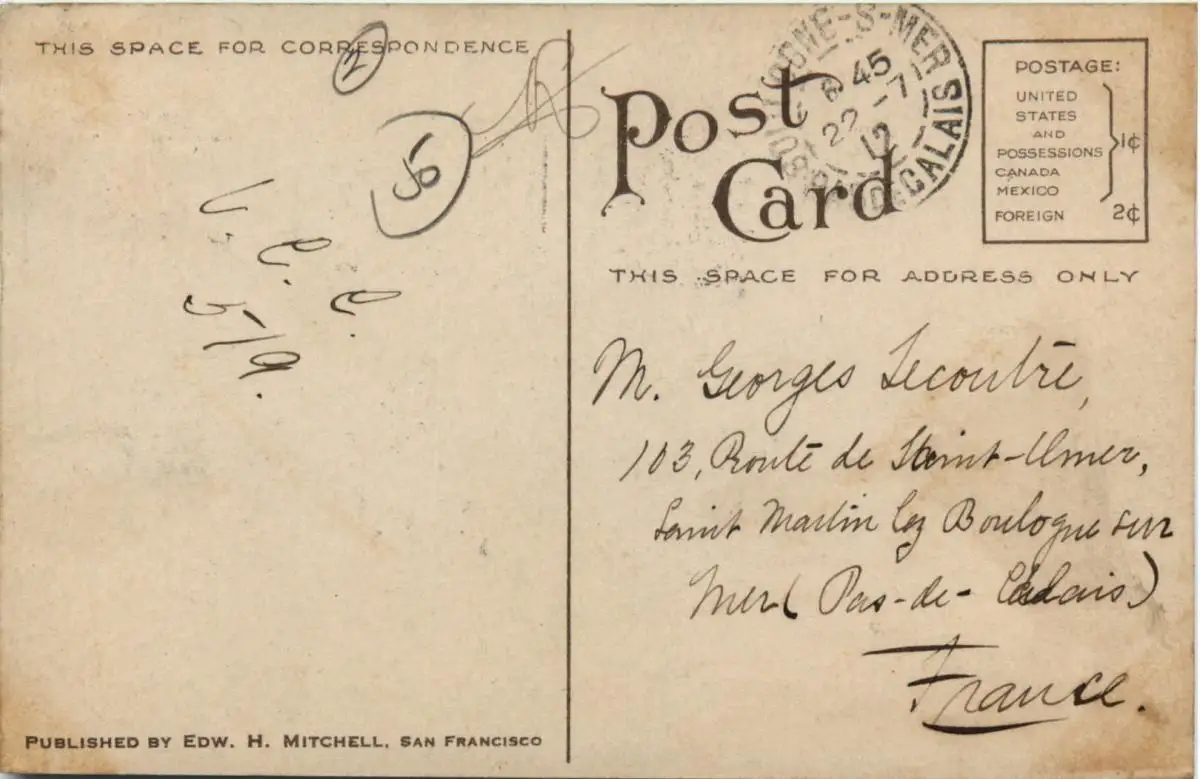 THIS SPACE FOR CORRESPONDENCE
2
5
V. E. E.
519.
PUBLISHED BY EDW. H. MITCHELL, SAN FRANCISCO
Post
Card
GNE-S-MER
PAS DE CALAIS
6 45
22-7
12
POSTAGE:
UNITED
STATES
AND
POSSESSIONS
CANADA
MEXICO
1¢
FOREIGN 2¢
THIS SPACE FOR ADDRESS ONLY
M. Georges Lecoutre,
103, Route de Saint-Omer,
Saint Martin lez Boulogne sur
Mer (Pas-de-Calais)
France.